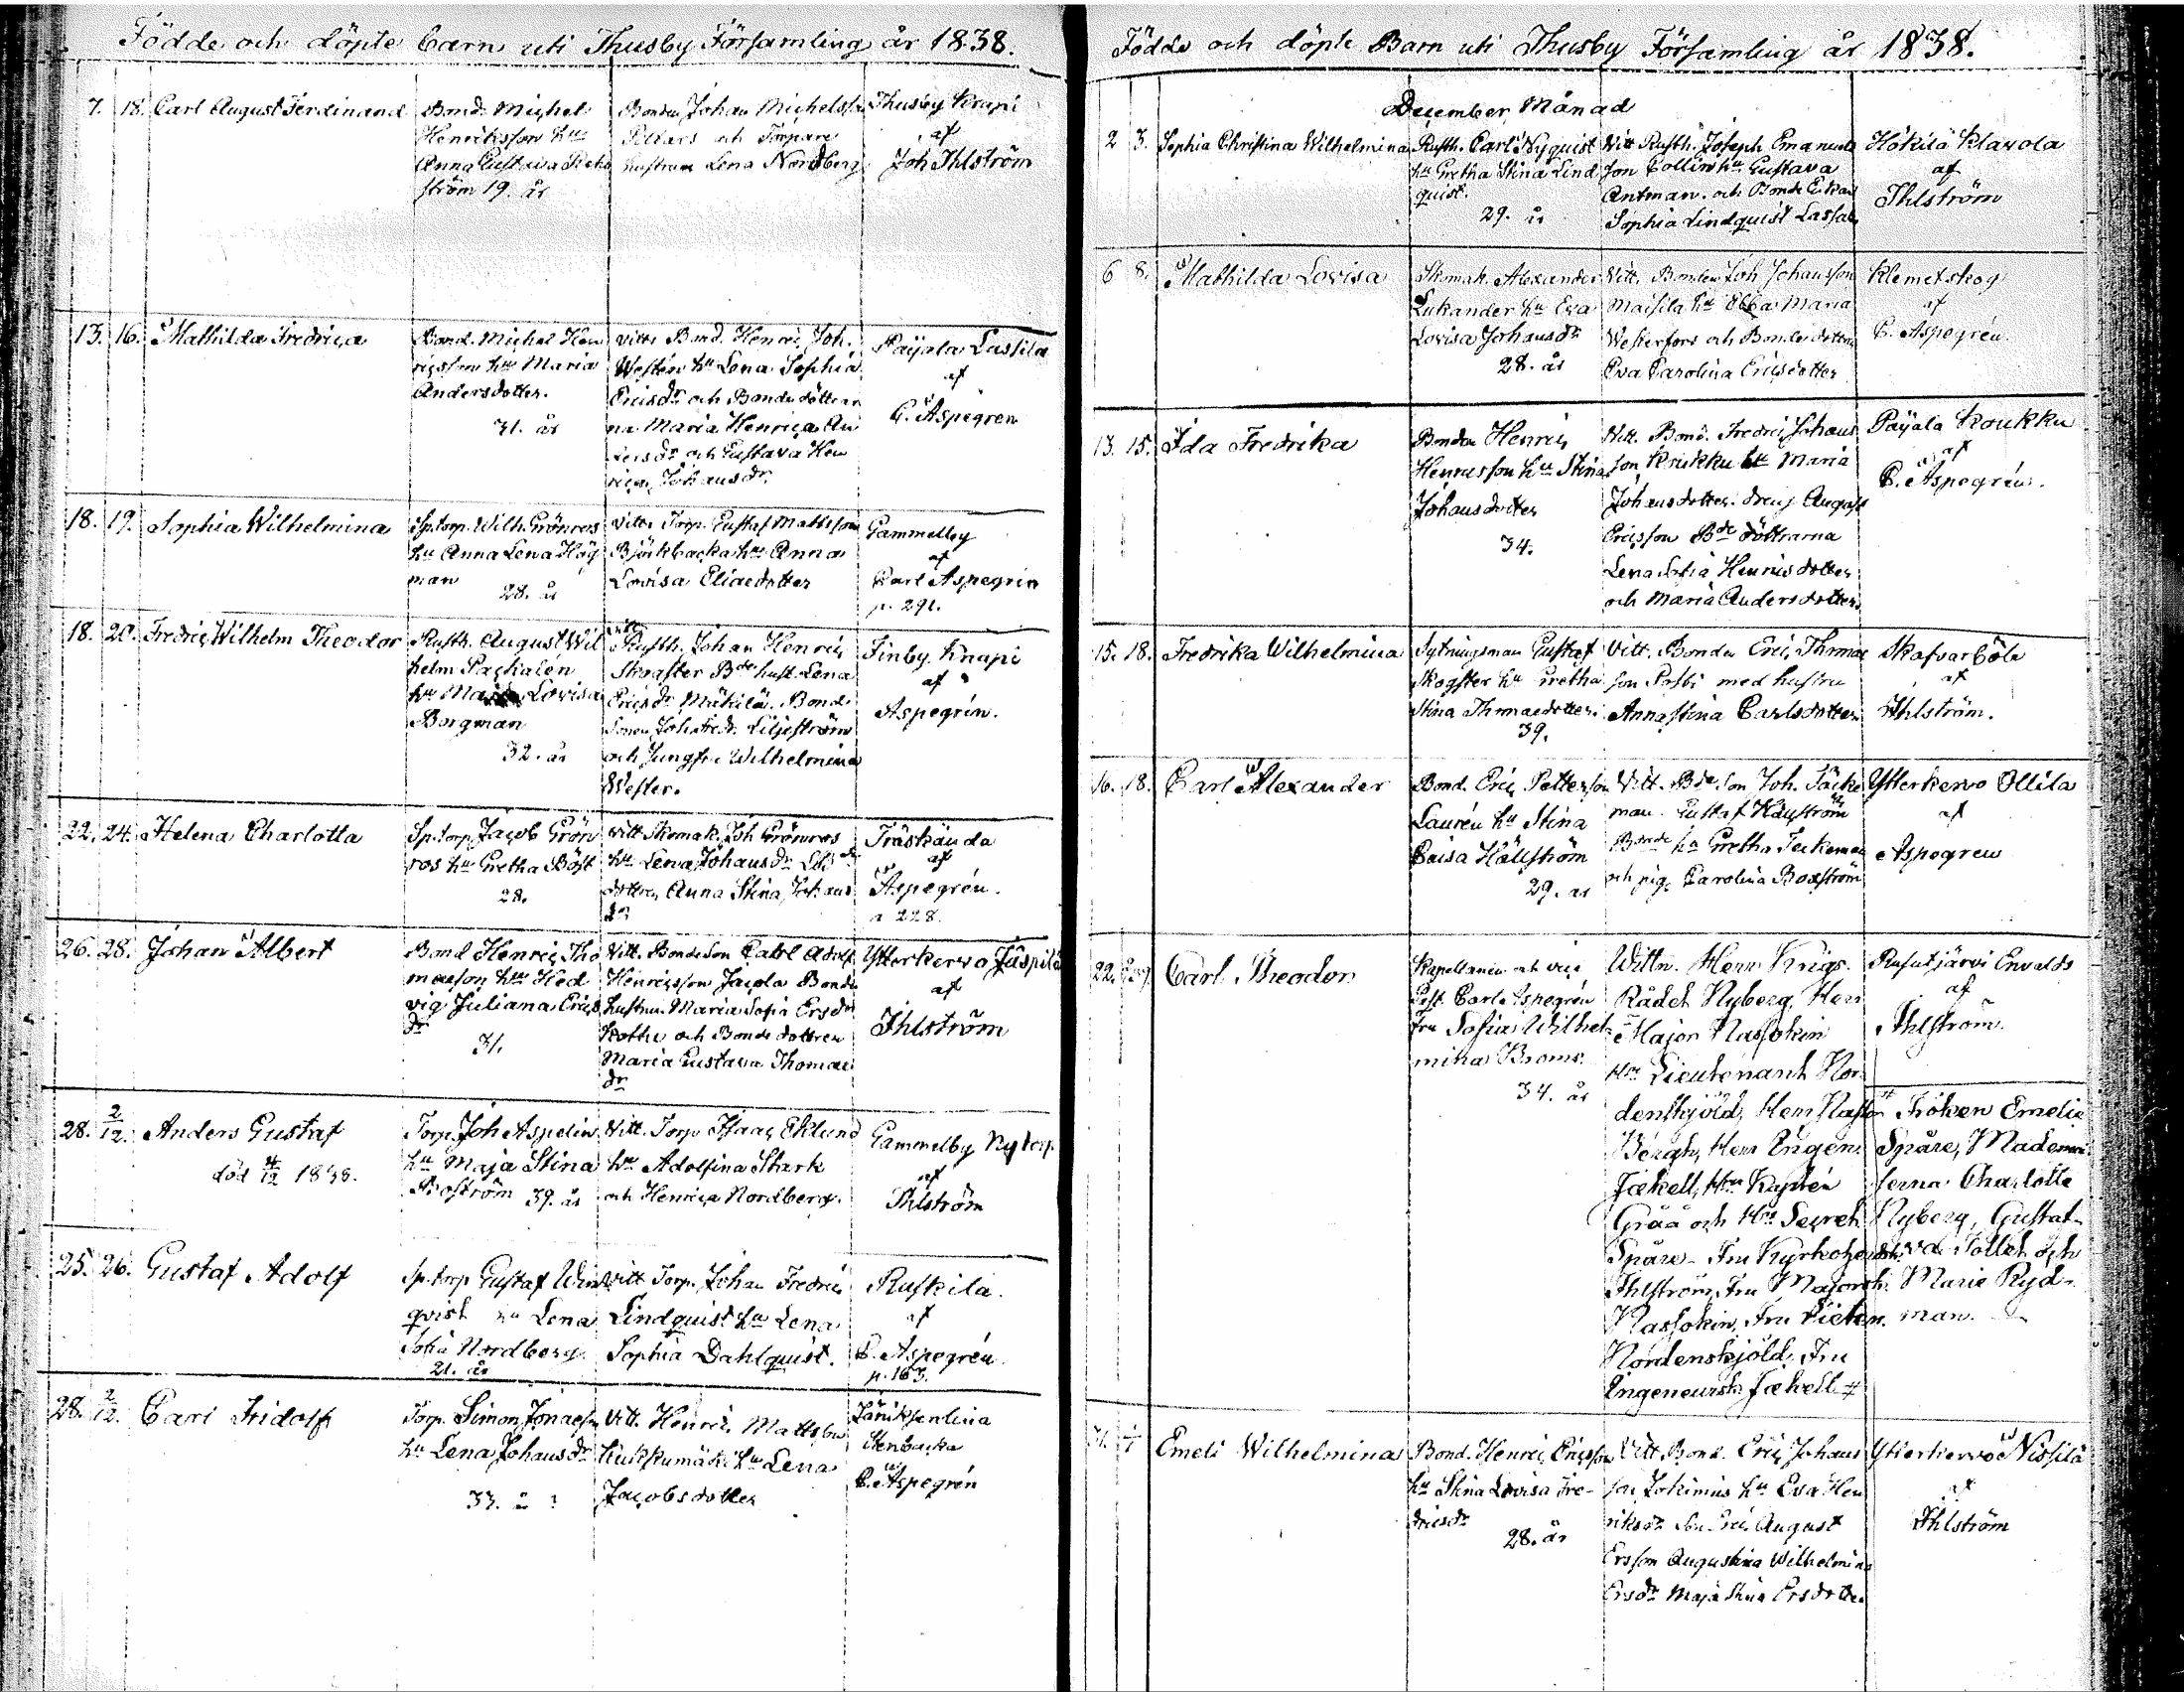 Födde och döpte Barn uti Thusby Församling år 1838.
7. 18. Carl August Ferdinand
Bond. Michel
Henriksson hu
Anna Gustava
ström 19. år
Bonden Johan Michelss
och Torpare
hustrun Lena Nordberg
Thusby Krapi
af
Joh Ihlström
13. 16. Mathilda Fredrica
Bond. Michel Hen
ricsson hu Maria
Andersdotter.
31. år
Vitt. Bond. Henric Joh.
Westén hu Lena Sophia
Ericsdr och Bondedöttrar
na Maria Henrica An
dersdr och Gustava Hen
rica Johansdr
Päyala Lassila
af
C. Aspegren
18. 19. Sophia Wilhelmina
Sp.torp. Wilh. Grönros
hu Anna Lena Hög
man
28. år
Vitt. Torp. Gustaf Mattsson
Björkbacka hu Anna
Lovisa Eliaedotter
Gammelby
af
Carl Aspegrén
p. 291.
18. 20. Fredric Wilhelm Theodor
Rusth. August Wil
helm Packalén
hu Lovisa
Borgman
32. år
Vitt.
Rusth. Johan Henric
Skogster Bde hust. Lena
Ericsdr Mäkilä. Bonde
Sonen Joh. Fredr. Liljeström
och Jungfr. Wilhelmina
Wester.
Finby Knapi
af
Aspegrén.
22. 24. Helena Charlotta
Sp.torp. Jacob Grön
ros hu Gretha Böst
28.
Vitt Skomak. Joh Grönros
hu Lena Johansdr
dottren Anna Stina Johans
dr
Träskända
af
Aspegrén.
p 228.
26. 28. Johan Albert
Bond Henric Tho
maeson hu Hed
vig Juliana Erics
dr
31.
Vitt. Bondeson Carl Adolf
Henricsson Jacola Bonde
hustrun Maria Sofia Ersdr
och Bonde dottren
Maria Gustava Thomae
dr
Ytterkervo Juspila
af
Ihlström
28. 2/12. Anders Gustaf
död 4/12 1838.
Torp. Joh Aspelin
hu Maja Stina
Boström 39. år
Vitt. Torp Isaac Eklund
hu Adolfina Stark
och Henrica Nordberg.
Gammelby Nytorp.
af
Ihlström
25. 26. Gustaf Adolf
Sp.torp Gustaf Wind
qvist hu Lena
Sofia Nordberg.
21. år
Vitt. Torp. Johan Fredric
Lindquist hu Lena
Sophia Dahlquist.
Ruskila.
af
C. Aspegrén.
p. 163.
28. 2/12. Carl Fridolf
Torp. Simon Jonaeson
hu Lena Johansdr
33. å
Vitt. Henric Mattsson
Kukkumäki hu Lena
Jacobsdotter
Stenbacka
C. Aspegrén
Födde och döpte Barn uti Thusby Församling år 1838.
December Månad
2 3. Sophia Christina Wilhelmina
Rusth. Carl Nyquist
hu Gretha Stina Lind
quist.
29. år
Vitt Rusth. Joseph Emanuels
son Collin hu Gustava
Antman. och Bonde
Sophia Lindquist
Hökilä Klavola
af
Ihlström
6 8. Mathilda Lovisa
Skomak. Alexander
Lukander hu Eva
Lovisa Johansdr
28. år
Vitt. Bonden Joh Johansson
Maisila hu Ebba Maria
Westerfors och Bondedottren
Eva Carolina Ericsdotter
Klemetskog
af
C. Aspegrén.
13. 15. Ida Fredrika
Bonden Henric
Henricsson hu Stina
Johansdotter
34.
Vitt. Bond. Fredric Johans
son Koukku hu Maria
Johansdotter. dreng August
Ericsson Bde döttrarna
Lena Sofia Henricsdotter
och Maria Andersdotter.
Päyala Koukku
af
C. Aspegrén.
15. 18. Fredrika Wilhelmina
Sytningsman Gustaf
Skogster hu Gretha
Stina Thomaedotter.
39.
Vitt. Bonden Eric Thomae
son Posti med hustru
Anna Stina Carlsdotter.
Skafvarböle
af
Ihlström.
16. 18. Carl Alexander
Bond. Eric Petterson
Laurén hu Stina
Caisa Hällström
29. år
Vitt. Bde.son Joh. Täcke
man. Gustaf Hägström
Bonde hu Gretha Teckeman
och pig. Carolina Boxström
Ytterkervo Ollila
af
Aspegren
22. Carl Theodor
Kapellanen och vice
Past. Carl Aspegrén
fru Sofia Wilhel
mina Broms.
34. år
Wittn. Herr Krigs-
Rådet Nyberg, Herr
Major Nassokin
Hr Lieutenant Nor
denskjöld, Herr
Bergh, Herr Ingen.
Jækell, Hr Kaptén
Gråå och Hr Secret.
Spåre. Fru Kyrkoherdsk.
Ihlström, Fru Majorsk.
Nassokin, Fru Lieten.
Nordenskjöld, Fru
Ingeneursk. Jækell #
Rusutjärvi Envalds
af
Ihlström.
# Fröken Emelie
Spåre, Mademoi
serna Charlotte
Nyberg, Gustaf-
va Tollet och
Marie Ryd-
man.
31. 1/1 Emeli Wilhelmina
Bond. Henric Ericsson
hu Stina Lovisa Fre-
dricsdr
28. år
Vitt. Bond. Eric Johans
son Jokimus hu Eva Hen
riksdr Son Eric August
Ersson Augustina Wilhelmina
Ersdr Maja Stina Ersdotter
Ytterkervo Nissilä
af
Ihlström